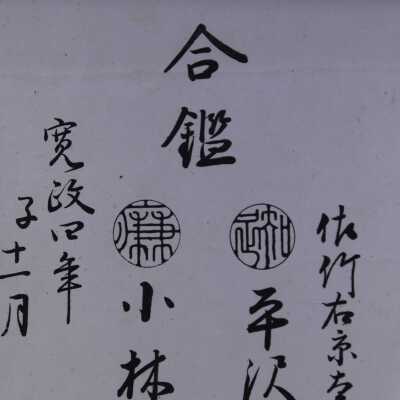 合鑑
佐竹右京太
平沢
小林
寛政四年
子十一月